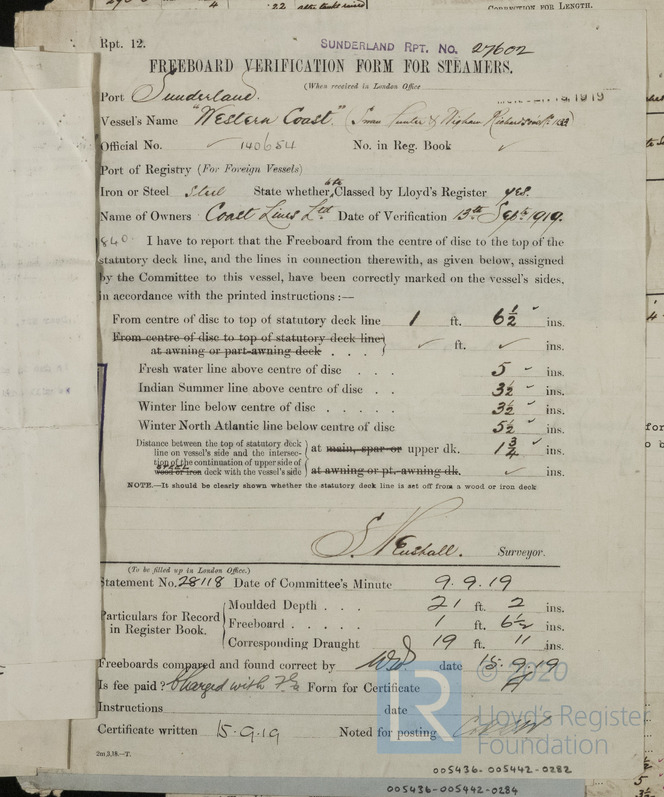 CORRECTION FOR LENGTH.
Rpt. 12.
SUNDERLAND RPT. NO. 27602
FREEBOARD VERIFICATION FORM FOR STEAMERS.
(When received in London Office
Port Sunderland.
Vessel's Name "Western Coast." (Swan Hunter & Wigham Richardson
Official No. 140654 No. in Reg. Book
Port of Registry (For Foreign Vessels)
Iron or Steel Steel State whether Classed by Lloyd's Register yes.
Name of Owners Coast Lines Ltd Date of Verification 13th Septr 1919.
840
I have to report that the Freeboard from the centre of disc to the top of the
statutory deck line, and the lines in connection therewith, as given below, assigned
by the Committee to this vessel, have been correctly marked on the vessel's sides,
in accordance with the printed instructions :—
From centre of disc to top of statutory deck line 1 ft. 6½ ins.
From centre of disc to top of statutory deck line
at awning or part-awning deck . . . ft. ins.
Fresh water line above centre of disc . . . 5 ins.
Indian Summer line above centre of disc . . 3½ ins.
Winter line below centre of disc . . . . . 3½ ins.
Winter North Atlantic line below centre of disc 5½ ins.
Distance between the top of statutory deck
line on vessel's side and the intersec-
tion of the continuation of upper side of
wood or iron deck with the vessel's side
steel
at main, spar or upper dk. 1¾ ins.
at awning or pt. awning dk. ins.
NOTE.—It should be clearly shown whether the statutory deck line is set off from a wood or iron deck
Surveyor.
(To be filled up in London Office.)
Statement No. 28118 Date of Committee's Minute 9.9.19
Particulars for Record
in Register Book.
Moulded Depth . . . 21 ft. 2 ins.
Freeboard . . . . . 1 ft. 6½ ins.
Corresponding Draught 19 ft. 11 ins.
Freeboards compared and found correct by date 15.9.19
Is fee paid ? Charged with F.E. Form for Certificate
Instructions date
Certificate written 15.9.19 Noted for posting
2m,3,18.—T.
© 2020
Lloyd's Register
Foundation
005436-005442-0282
005436-005442-0284